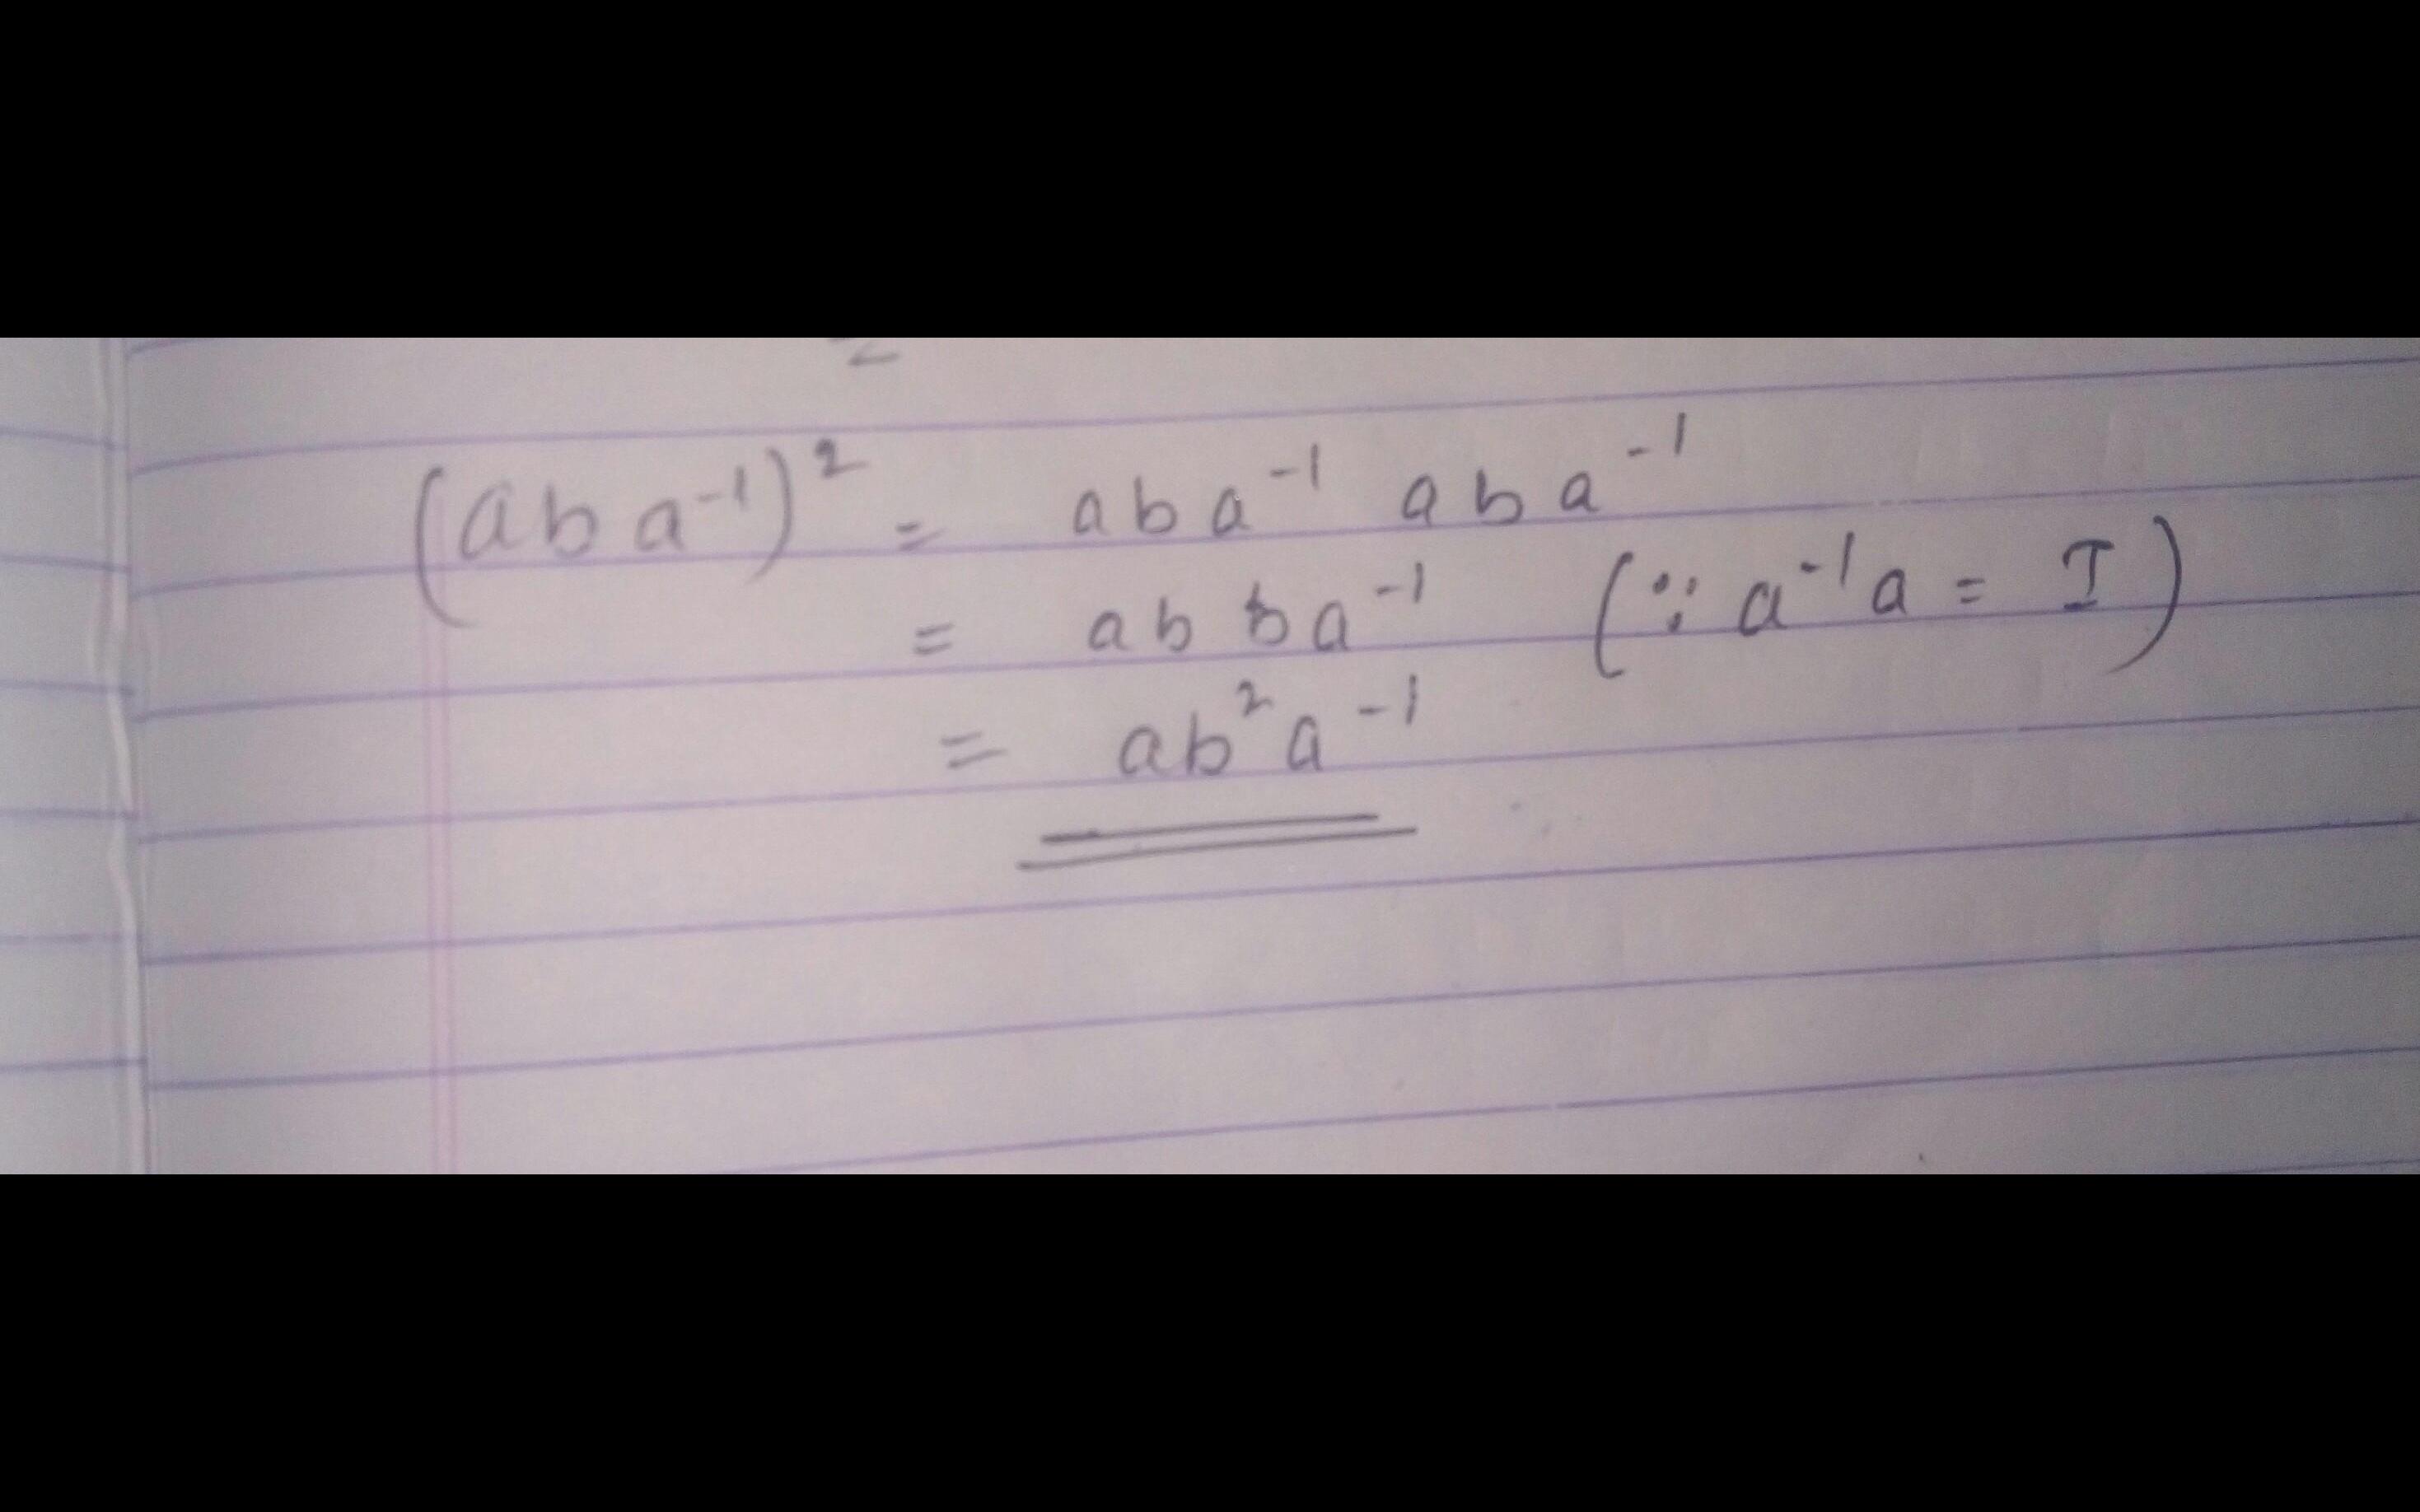 (aba⁻¹)² = aba⁻¹ aba⁻¹
= abba⁻¹ (∵ a⁻¹a = I)
= ab²a⁻¹